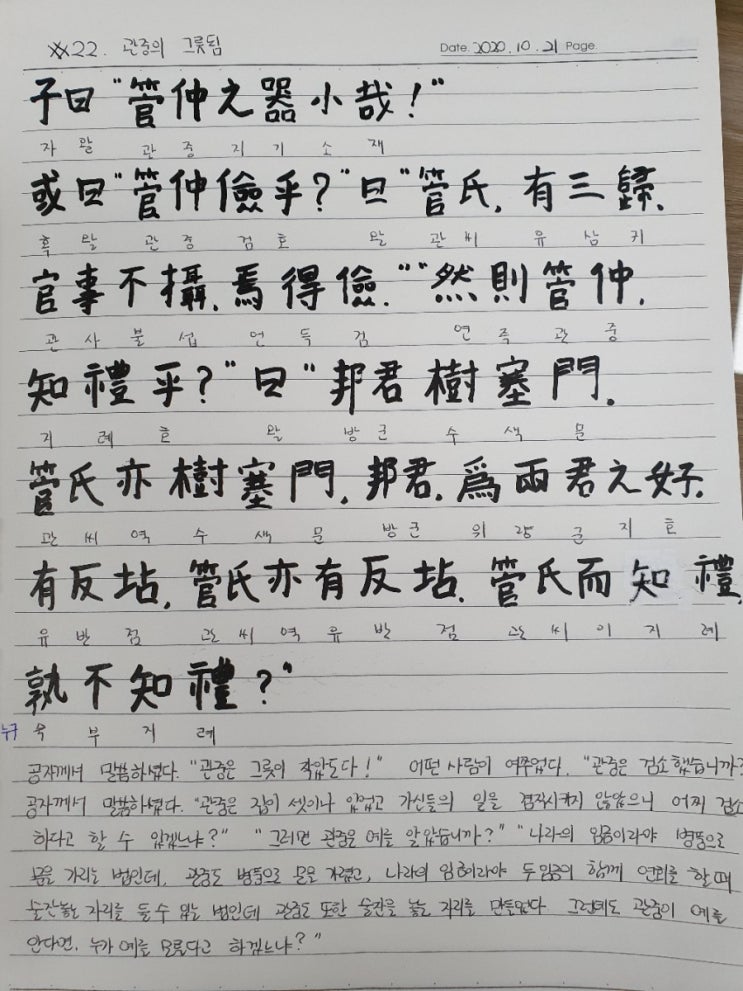 ※22. 관중의 그릇됨 Date. 2020.10.21 Page
子曰"管仲之器小哉!"
자 왈 관 중 지 기 소 재
或曰"管仲儉乎?"曰"管氏, 有三歸,
혹 왈 관 중 검 호 왈 관 씨 유 삼 귀
官事不攝, 焉得儉.""然則管仲,
관 사 불 섭 언 득 검 연 즉 관 중
知禮乎?"曰"邦君樹塞門.
지 례 호 왈 방 군 수 색 문
管氏亦樹塞門, 邦君, 爲兩君之好,
관 씨 역 수 색 문 방 군 위 량 군 지 호
有反坫, 管氏亦有反坫. 管氏而知禮,
유 반 점 관 씨 역 유 반 점 관 씨 이 지 례
孰不知禮?"
누구 숙 부 지 례
공자께서 말씀하셨다. "관중은 그릇이 작았도다!" 어떤 사람이 여쭈었다. "관중은 검소했습니까?
공자께서 말씀하셨다. "관중은 집이 셋이나 있었고 가신들의 일을 겸직시키지 않았으니 어찌 검소
하다고 할 수 있겠느냐?" "그러면 관중은 예를 알았습니까?" "나라의 임금이라야 병풍으로
문을 가리는 법인데, 관중도 병풍으로 문을 가렸고, 나라의 임금이라야 두 임금이 함께 연회를 할 때
술잔 놓는 자리를 둘 수 있는 법인데 관중도 또한 술잔을 놓는 자리를 만들었다. 그런데도 관중이 예를
안다면, 누가 예를 모른다고 하겠느냐?"